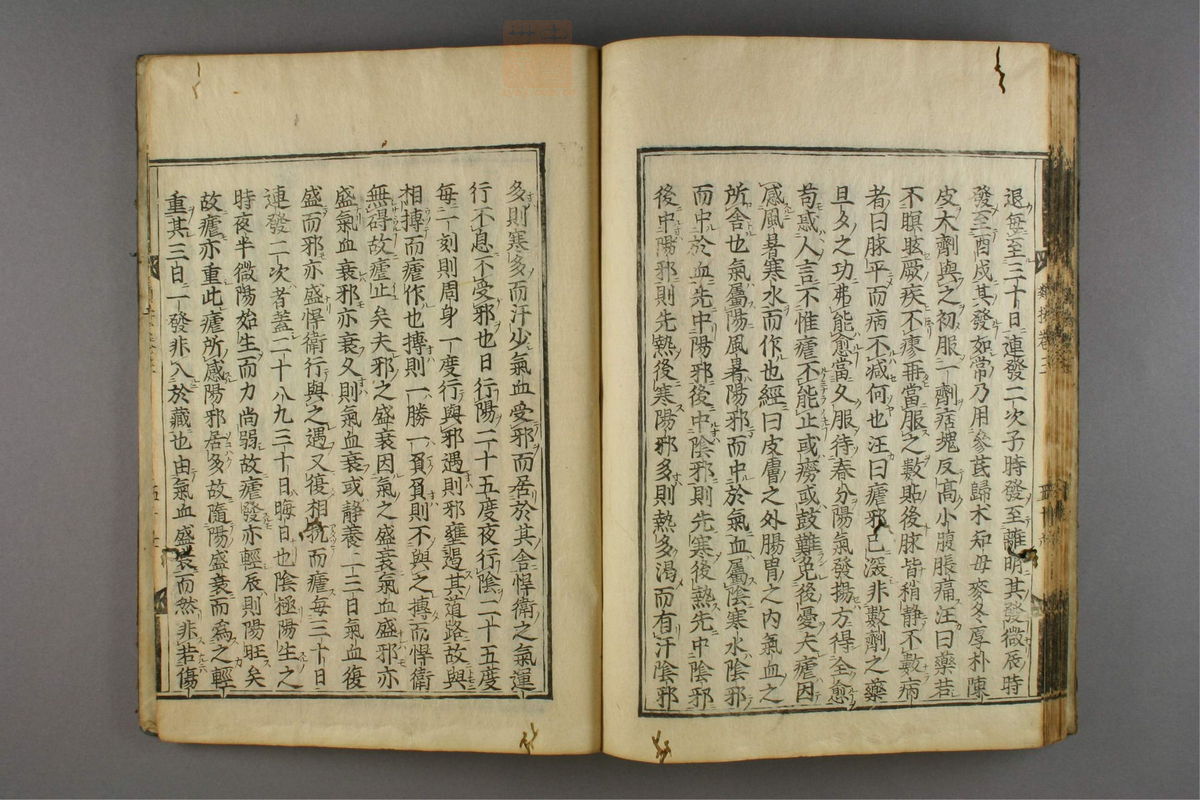 退每至三十日連發二次子時發至薤明其發微辰時
發至酉戌其發如常乃用參芪歸朮知母麥冬厚朴陳
皮大劑與之初服一劑痞塊反高小腹脹痛汪曰藥若
不瞑眩厥疾不瘳再當服之數貼後脉皆稍靜不數病
者曰脉平而病不減何也汪曰瘧邪已深非數劑之藥
旦夕之功弗能愈當久服待春分陽氣發揚方得全愈
苟惑人言不惟瘧不能止或癆或鼓難免後憂夫瘧因
感風暑寒水而作也經曰皮膚之外腸胃之內氣血之
所舍也氣屬陽風暑陽邪而中於氣血屬陰寒水陰邪
而中於血先中陽邪後中陰邪則先寒後熱先中陰邪
後中陽邪則先熱後寒陽邪多則熱多渴而有汗陰邪
多則寒多而汗少氣血受邪而居於其舍悍衛之氣運
行不息不受邪也日行陽二十五度夜行陰二十五度
每一刻則周身一度行與邪遇則邪壅遏其道路故與
相搏而瘧作也搏則一勝一負負則不與之搏而悍衛
無碍故瘧止矣夫邪之盛衰因氣之盛衰氣血盛邪亦
盛氣血衰邪亦衰久則氣血衰或靜養二三日氣血復
盛而邪亦盛悍衛行與之遇又復相抗而瘧每三十日
連發二次者蓋二十八九三十日晦日也陰極陽生之
時夜半微陽始生而力尚弱故瘧發亦輕辰則陽旺矣
故瘧亦重此瘧所感陽邪居多故隨陽盛衰而爲之輕
重其三日一發非入於藏也由氣血盛衰而然非若傷